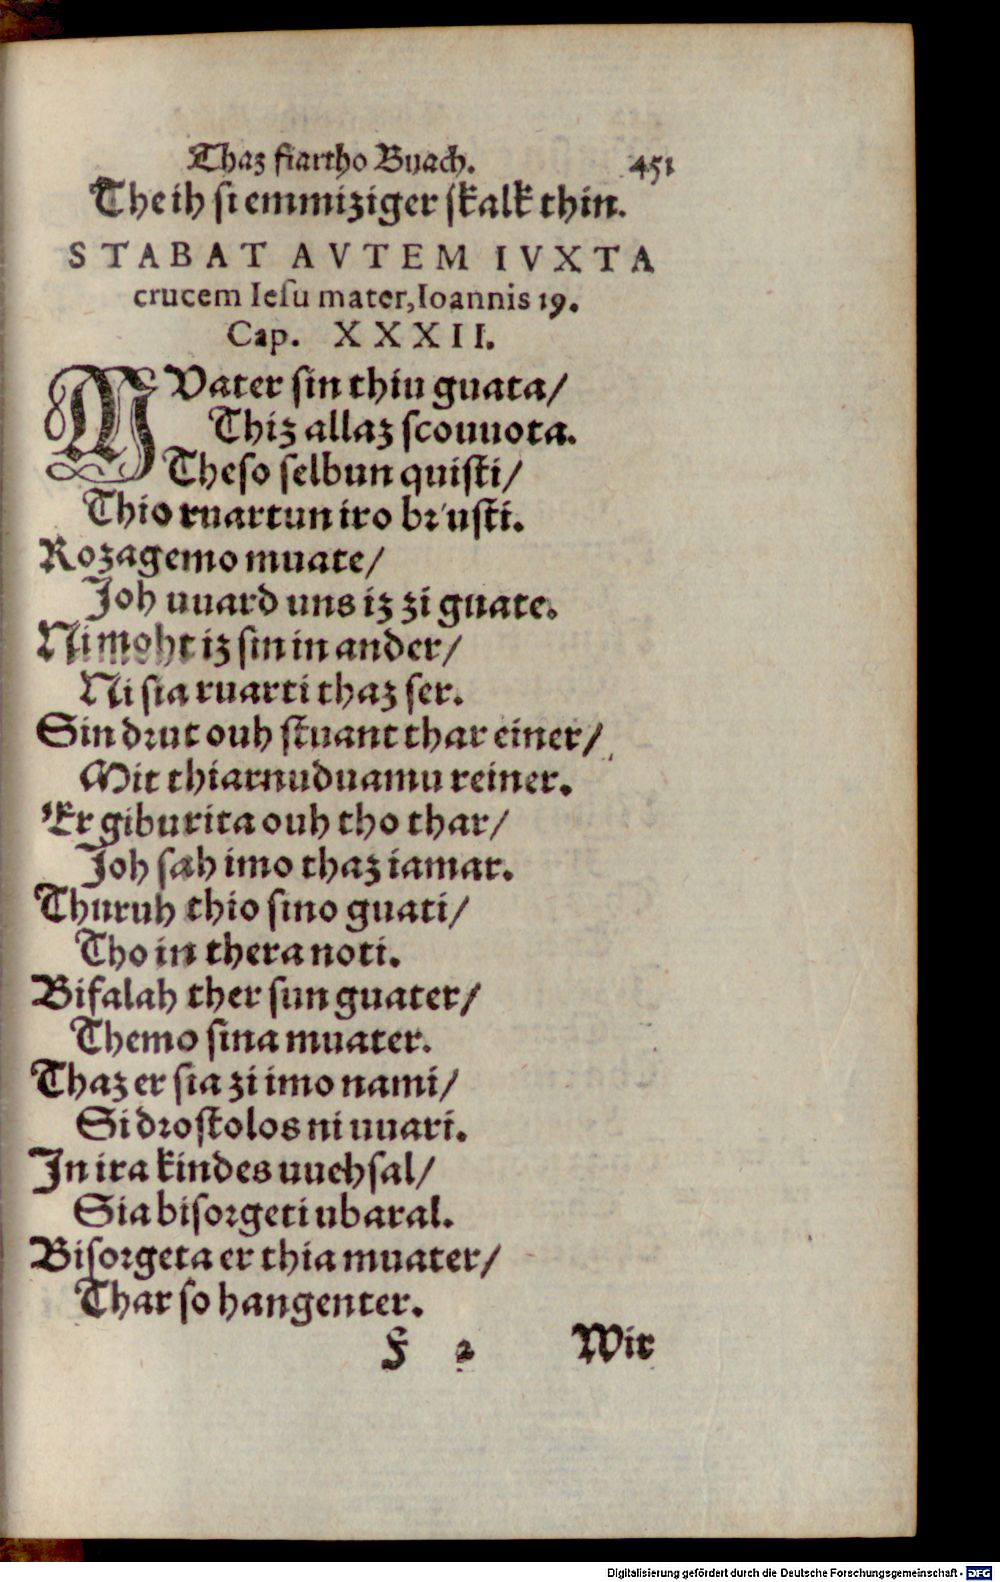 Thaz fiartho Buach. 451
The ih si emmiziger skalk thin.
STABAT AVTEM IVXTA
crucem Iesu mater, Ioannis 19.
Cap. XXXII.
MVater sin thiu guata/
Thiz allaz scouuota.
Theso selbun quisti/
Thio ruartun iro brusti.
Rozagemo muate/
Joh uuard uns iz zi guate.
Ni moht iz sin in ander/
Ni sia ruarti thaz ser.
Sin drut ouh stuant thar einer/
Mit thiarnuduamu reiner.
Er giburita ouh tho thar/
Joh sah imo thaz iamar.
Thuruh thio sino guati/
Tho in thera noti.
Bifalah ther sun guater/
Themo sina muater.
Thaz er sia zi imo nami/
Si drostolos ni uuari.
In ira kindes uuehsal/
Sia bisorgeti ubaral.
Bisorgeta er thia muater/
Thar so hangenter.
F 2 Wir
Digitalisierung gefördert durch die Deutsche Forschungsgemeinschaft - DFG